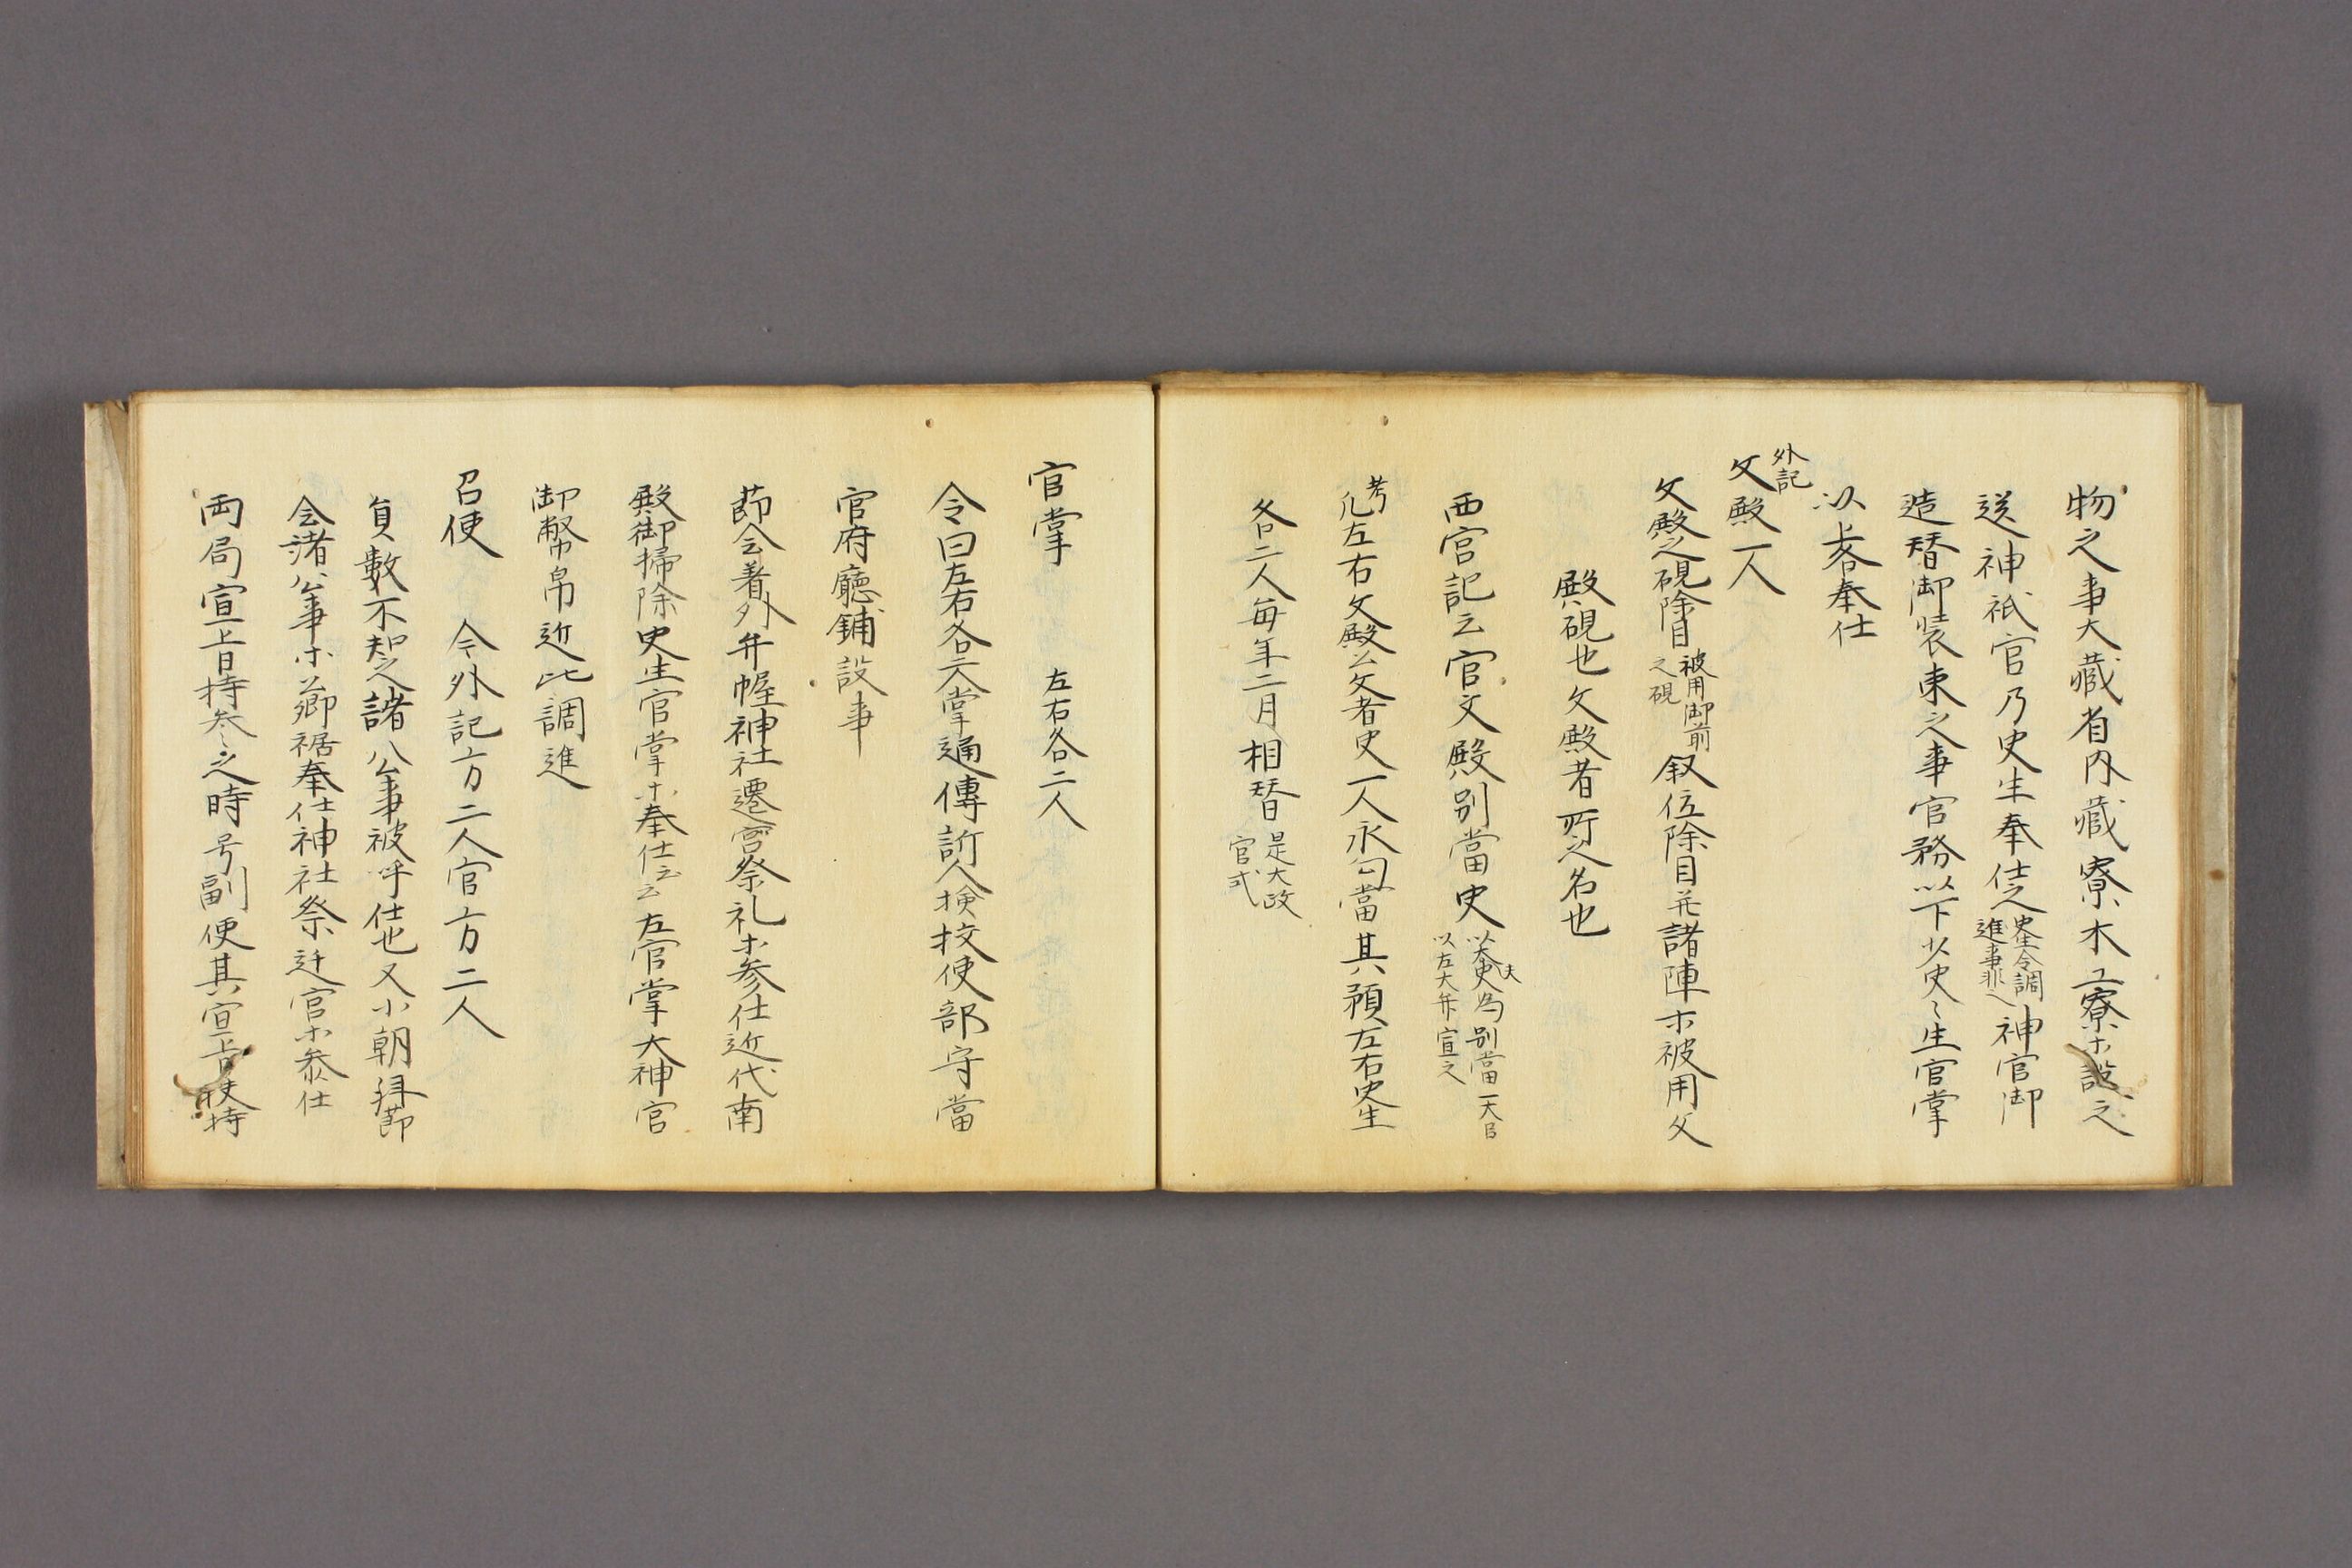 物之事大藏省内藏寮木工寮ホ設之
送神祇官乃史生奉仕之
史生令調
進事非之
神官御
造替御装束之事官務以下以史〻生官掌
以上各奉仕
外記
文殿一人
文殿之硯除目
被用御前
之硯
叙位除目并諸陣ホ被用文
殿硯也文殿者所之名也
西官記云官文殿別當史
以大夫史為別當
以左大弁宣之
考
凡左右文殿公文者史一人永勾當其預左右史生
各二人毎年二月相替
是大政
官式
官掌 左右各二人
令曰左右各二人掌通傳訴人検校使部守當
官府廳鋪設事
節会着外弁幄神社遷宮祭礼ホ参仕近代南
殿御掃除史生官掌ホ奉仕云云左官掌大神官
御幣帛近比調進
召使 今外記方二人官方二人
員數不知之諸公事被呼仕也又小朝拝節
会諸公事ホ公卿裾奉仕神社祭迁宮ホ参仕
両局宣旨持参之時号副使其宣旨持